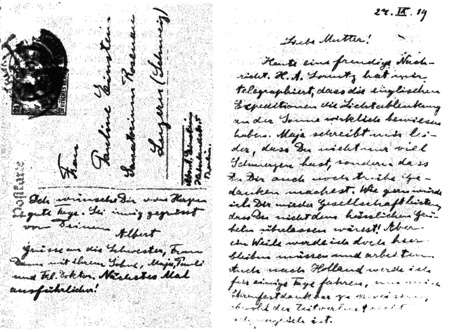 Postkarte
Frau
Pauline Einstein
Sanatorium Rosenau
Luzern (Schweiz)
Ich wünsche Dir von Herzen
gute Tage. Sei innig gegrüsst
von Deinem
Albert
Grüsse an die Schwester, Frau
mit ihrem Sohne, Maja, Pauli
und Frl. Doktor. Nächstes Mal
ausführlicher!
27. IX 19
Liebe Mutter!
Heute eine freudige Nach-
richt. H. A. Lorentz hat mir
telegraphiert, dass die englischen
Expeditionen die Lichtablenkung
an der Sonne wirklich bewiesen
haben. Maja schreibt mir lei-
der, dass Du nicht nur viel
Schmerzen hast, sondern dass
Du Dir auch noch trübe Ge-
danken machest. Wie gern würde
ich Dir wieder Gesellschaft leisten,
dass Du nicht dem hässlichen Grü-
beln überlassen wärest! Aber
ein Weile werde ich doch hier
bleiben müssen und arbeiten.
Auch nach Holland werde ich
für einige Tage fahren, um meine
Ehrenfest dankbar zu
der Zeitverlust
ist.